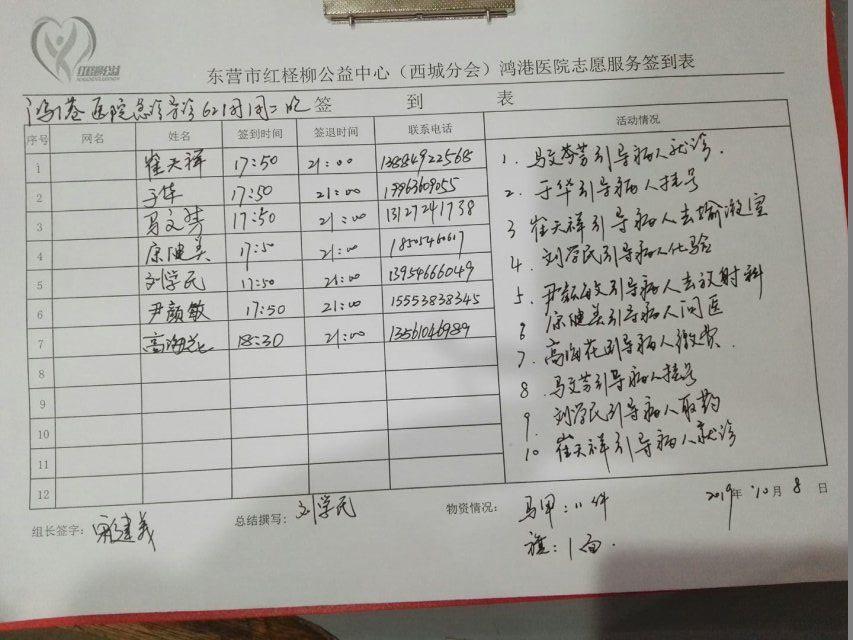 红柽柳公益
东营市红柽柳公益中心（西城分会）鸿港医院志愿服务签到表
鸿港医院急诊导诊621周周二晚 签 到 表
序号 网名 姓名 签到时间 签退时间 联系电话 活动情况
1 崔天祥 17:50 21:00 13884922568
2 于华 17:50 21:00 19963609055
3 马文芳 17:50 21:00 13127241738
4 原健美 17:50 21:00 18505460617
5 刘学民 17:50 21:00 13954666049
6 尹颜敏 17:50 21:00 15553838345
7 高海花 18:30 21:00 13561046989
8
9
10
11
12
1. 马文芳引导病人就诊.
2. 于华引导病人挂号
3 崔天祥引导病人去输液室
4. 刘学民引导病人化验
5. 尹颜敏引导病人去放射科
6 原健美引导病人问医
7. 高海花引导病人缴费.
8 马文芳引导病人挂号
9. 刘学民引导病人取药
10 崔天祥引导病人就诊
组长签字: 总结撰写: 刘学民 物资情况: 马甲: 11件 2019年 10月 8日
旗: 1面.